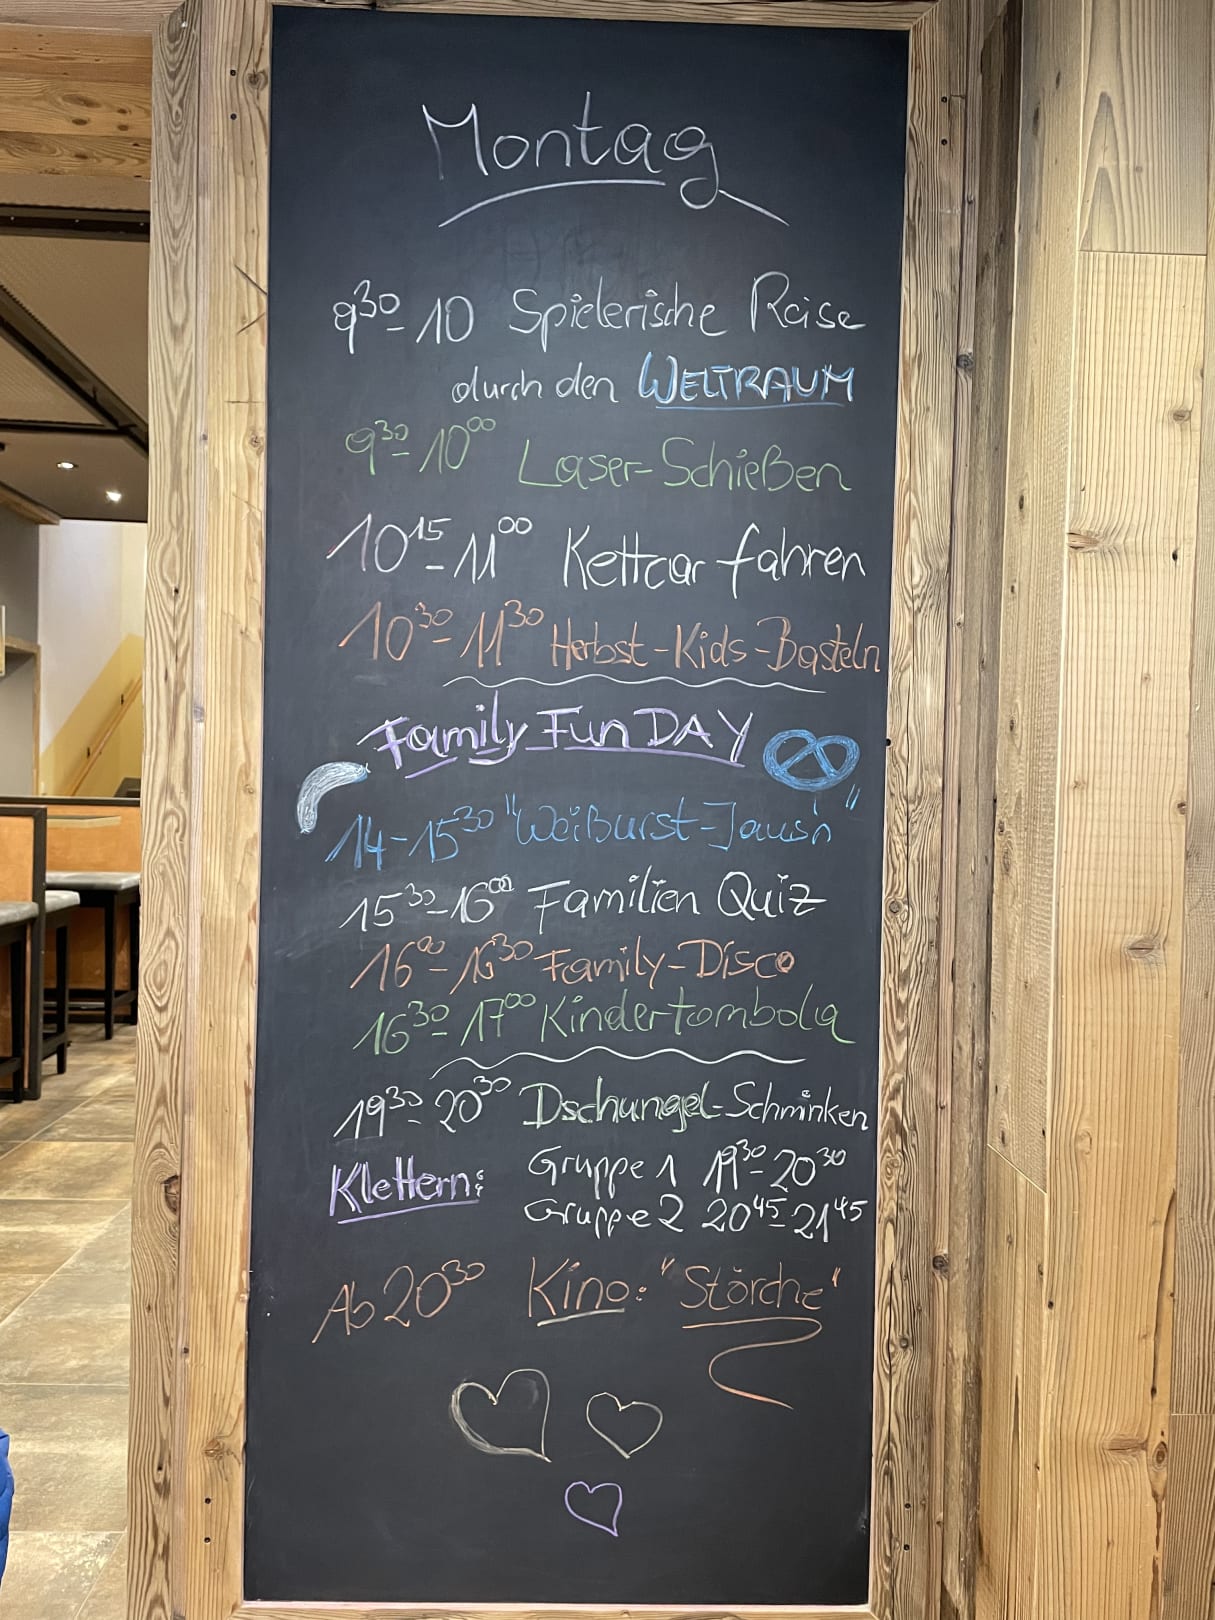 Montag
9³⁰-10 Spielerische Reise
durch den WELTRAUM
9³⁰-10⁰⁰ Laser-Schießen
10¹⁵-11⁰⁰ Kettcar fahren
10³⁰-11³⁰ Herbst-Kids-Basteln
Family Fun DAY
14-15³⁰ "Weißurst-Jausn"
15³⁰-16⁰⁰ Familien Quiz
16⁰⁰-16³⁰ Family-Disco
16³⁰-17⁰⁰ Kindertombola
19³⁰-20³⁰ Dschungel-Schminken
Klettern: Gruppe 1 19³⁰-20³⁰
Gruppe 2 20⁴⁵-21⁴⁵
Ab 20³⁰ Kino: "Störche"